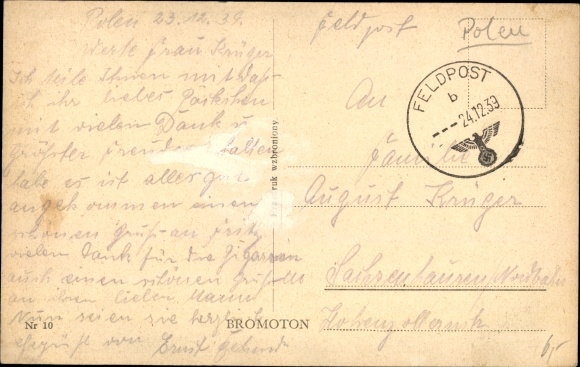 Polen 23.12.39.
Werte Frau Krüger
Ich teile Ihnen mit daß
ich ihr liebes Päckchen
mit vielen Dank u
größter Freude erhalten
habe es ist alles gut
angekommen einen
schönen Gruß an Fritz
vielen Dank für die Zigarren
auch einen schönen Gruß
an ihren lieben Mann
Nun seien sie herzlich
gegrüßt von Ernst
Nr 10
BROMOTON
ruk wzbroniony
Feldpost
Polen
FELDPOST
b
---24.12.39
An
Familie
August Krüger
Sachsenhausen Nordbahn
6,-